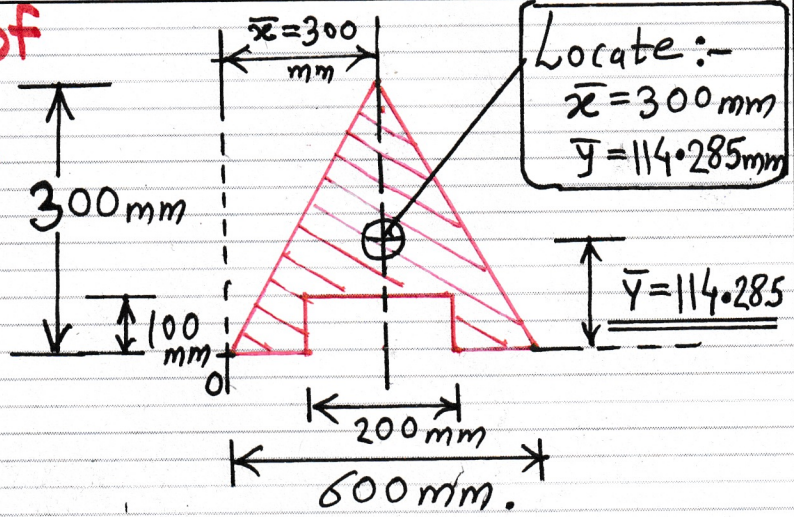 of
x̄=300
mm
Locate:-
x̄=300mm
ȳ=114.285mm
300mm
100
mm
ȳ=114.285
0
200mm
600mm.